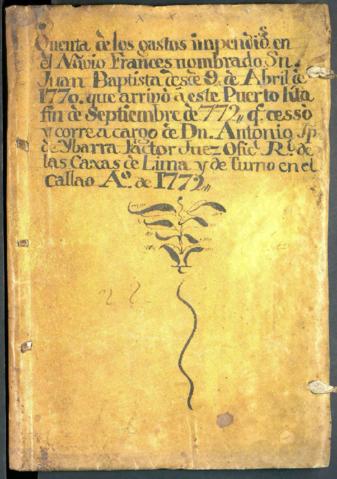 Quenta de los gastos impendids. en
el Navio Frances nombrado Sn.
Juan Baptista desde 9. de Abril de
1770. que arrivó à este Puerto hta
fin de Septiembre de 772,, q.e cessò
y corre a cargo de Dn. Antonio Jph
de Ybarra Factor Juez Ofiꝉ. Rꝉ. de
las Caxas de Lima y de turno en el
Callao Ao. de 1772,,